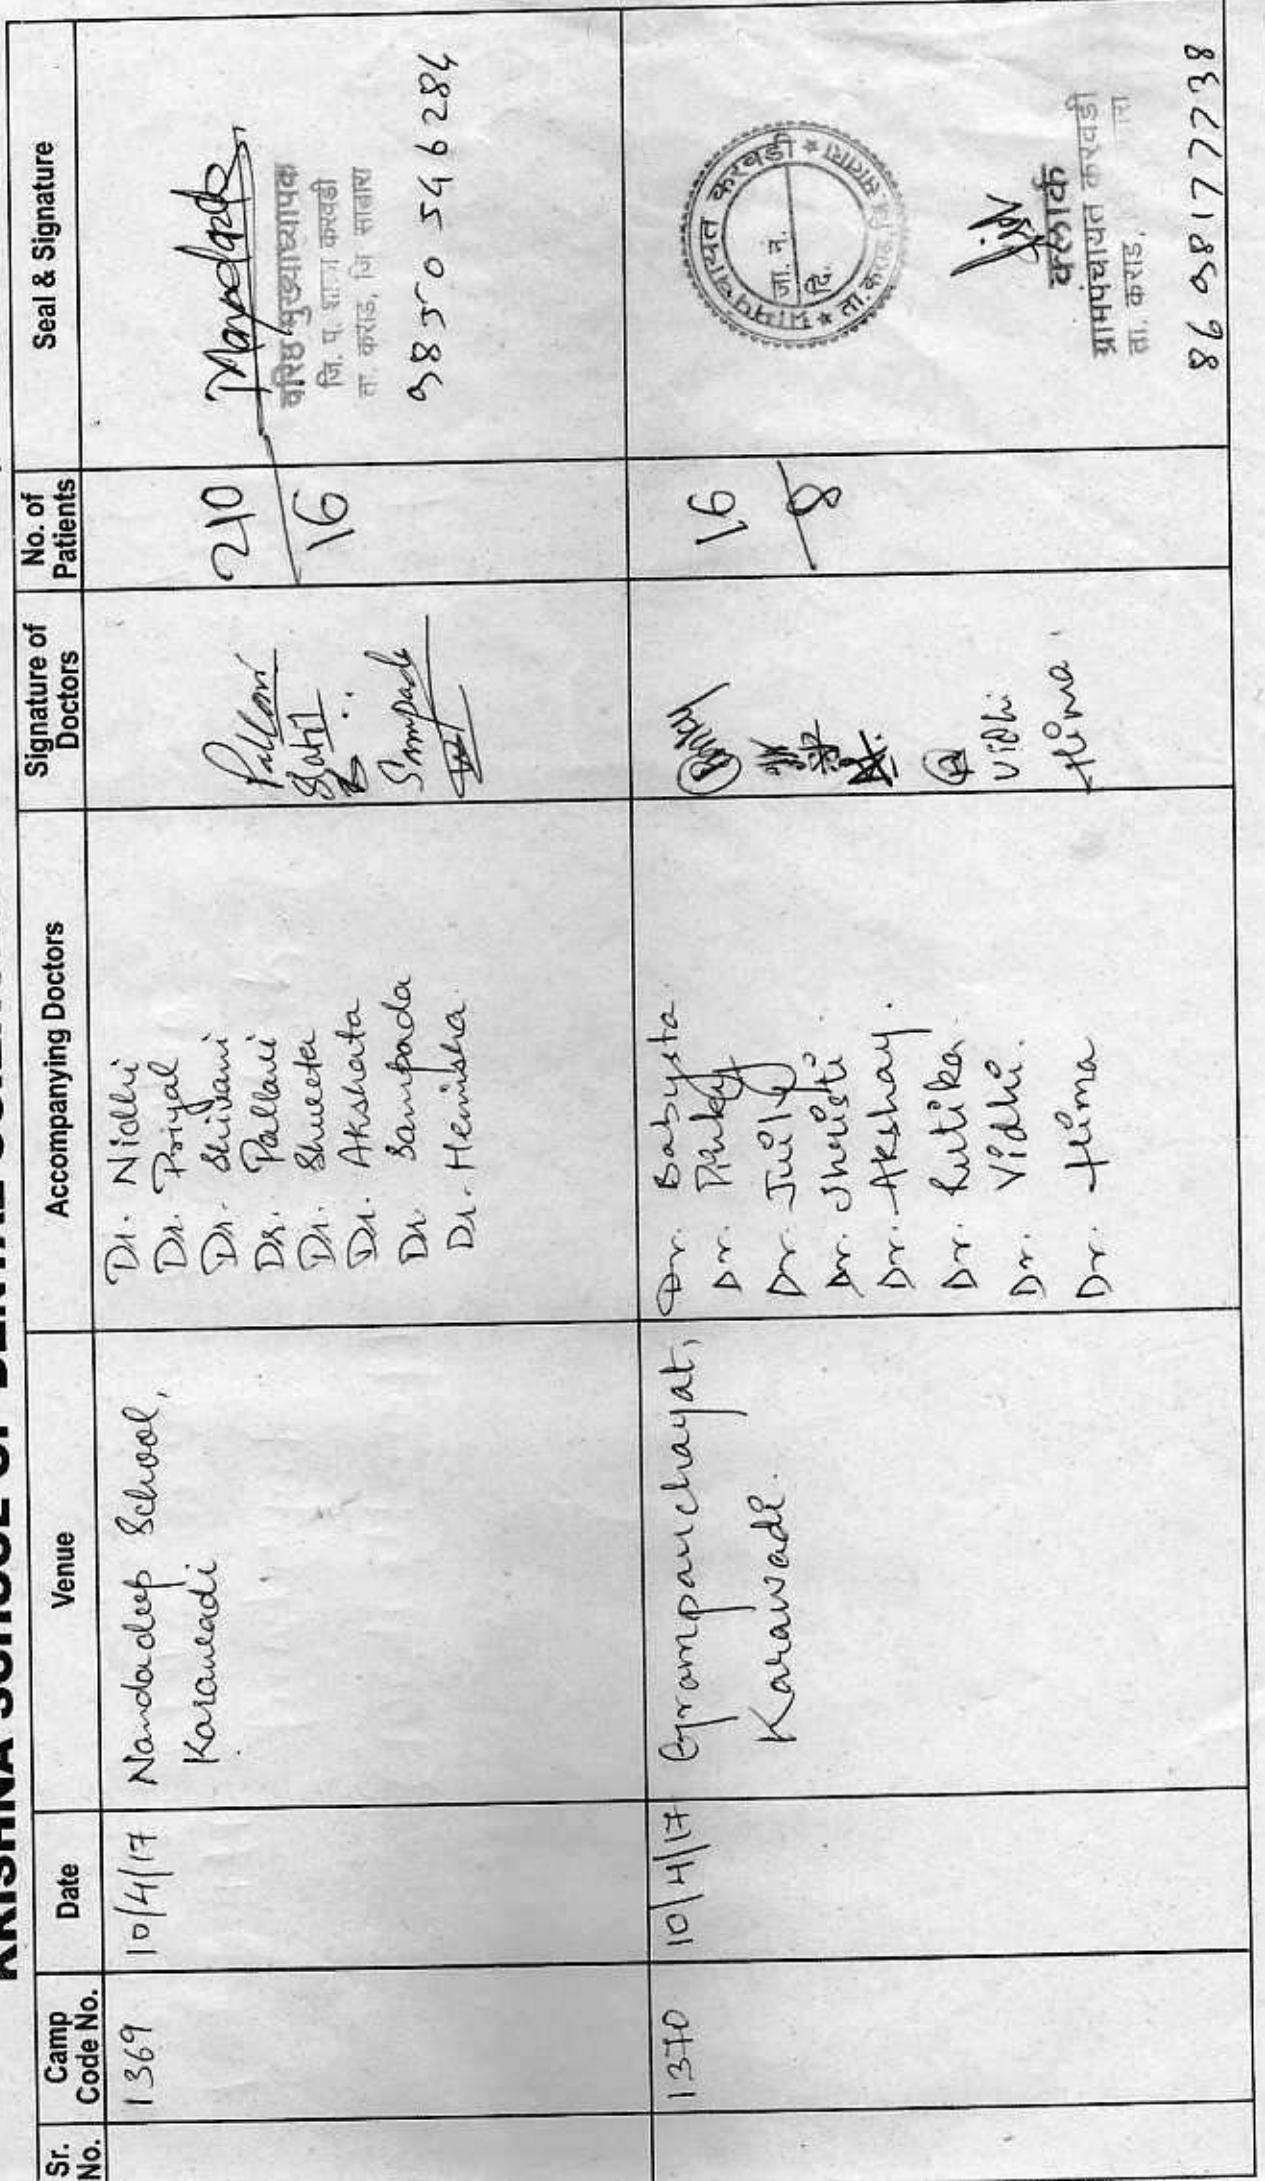 KRISHNA SCHOOL OF DENTAL
Sr. No.
Camp Code No.
Date
Venue
Accompanying Doctors
Signature of Doctors
No. of Patients
Seal & Signature
1369
10/4/17
Nandadeep School,
Karawadi
Dr. Nidhi
Dr. Priyal
Dr. Shivani
Dr. Pallavi
Dr. Shweta
Dr. Akshata
Dr. Sampada
Dr. Hemisha.
Pallavi
210
16
वरिष्ठ मुख्याध्यापक
जि. प. शाळा करवडी
ता. कराड, जि सातारा
9850546284
1370
10/4/17
Grampanchayat,
Karawadi.
Dr. Babysta
Dr. Pinky
Dr. Juily
Dr. Shristi.
Dr. Akshay.
Dr. Rutika.
Dr. Vidhi.
Dr. Hima
Vidhi
Hima.
16
8
ग्रामपंचायत करवडी
ता. कराड जि सातारा
जा. नं.
दि.
क्लार्क
ग्रामपंचायत करवडी
ता. कराड,
8698177738